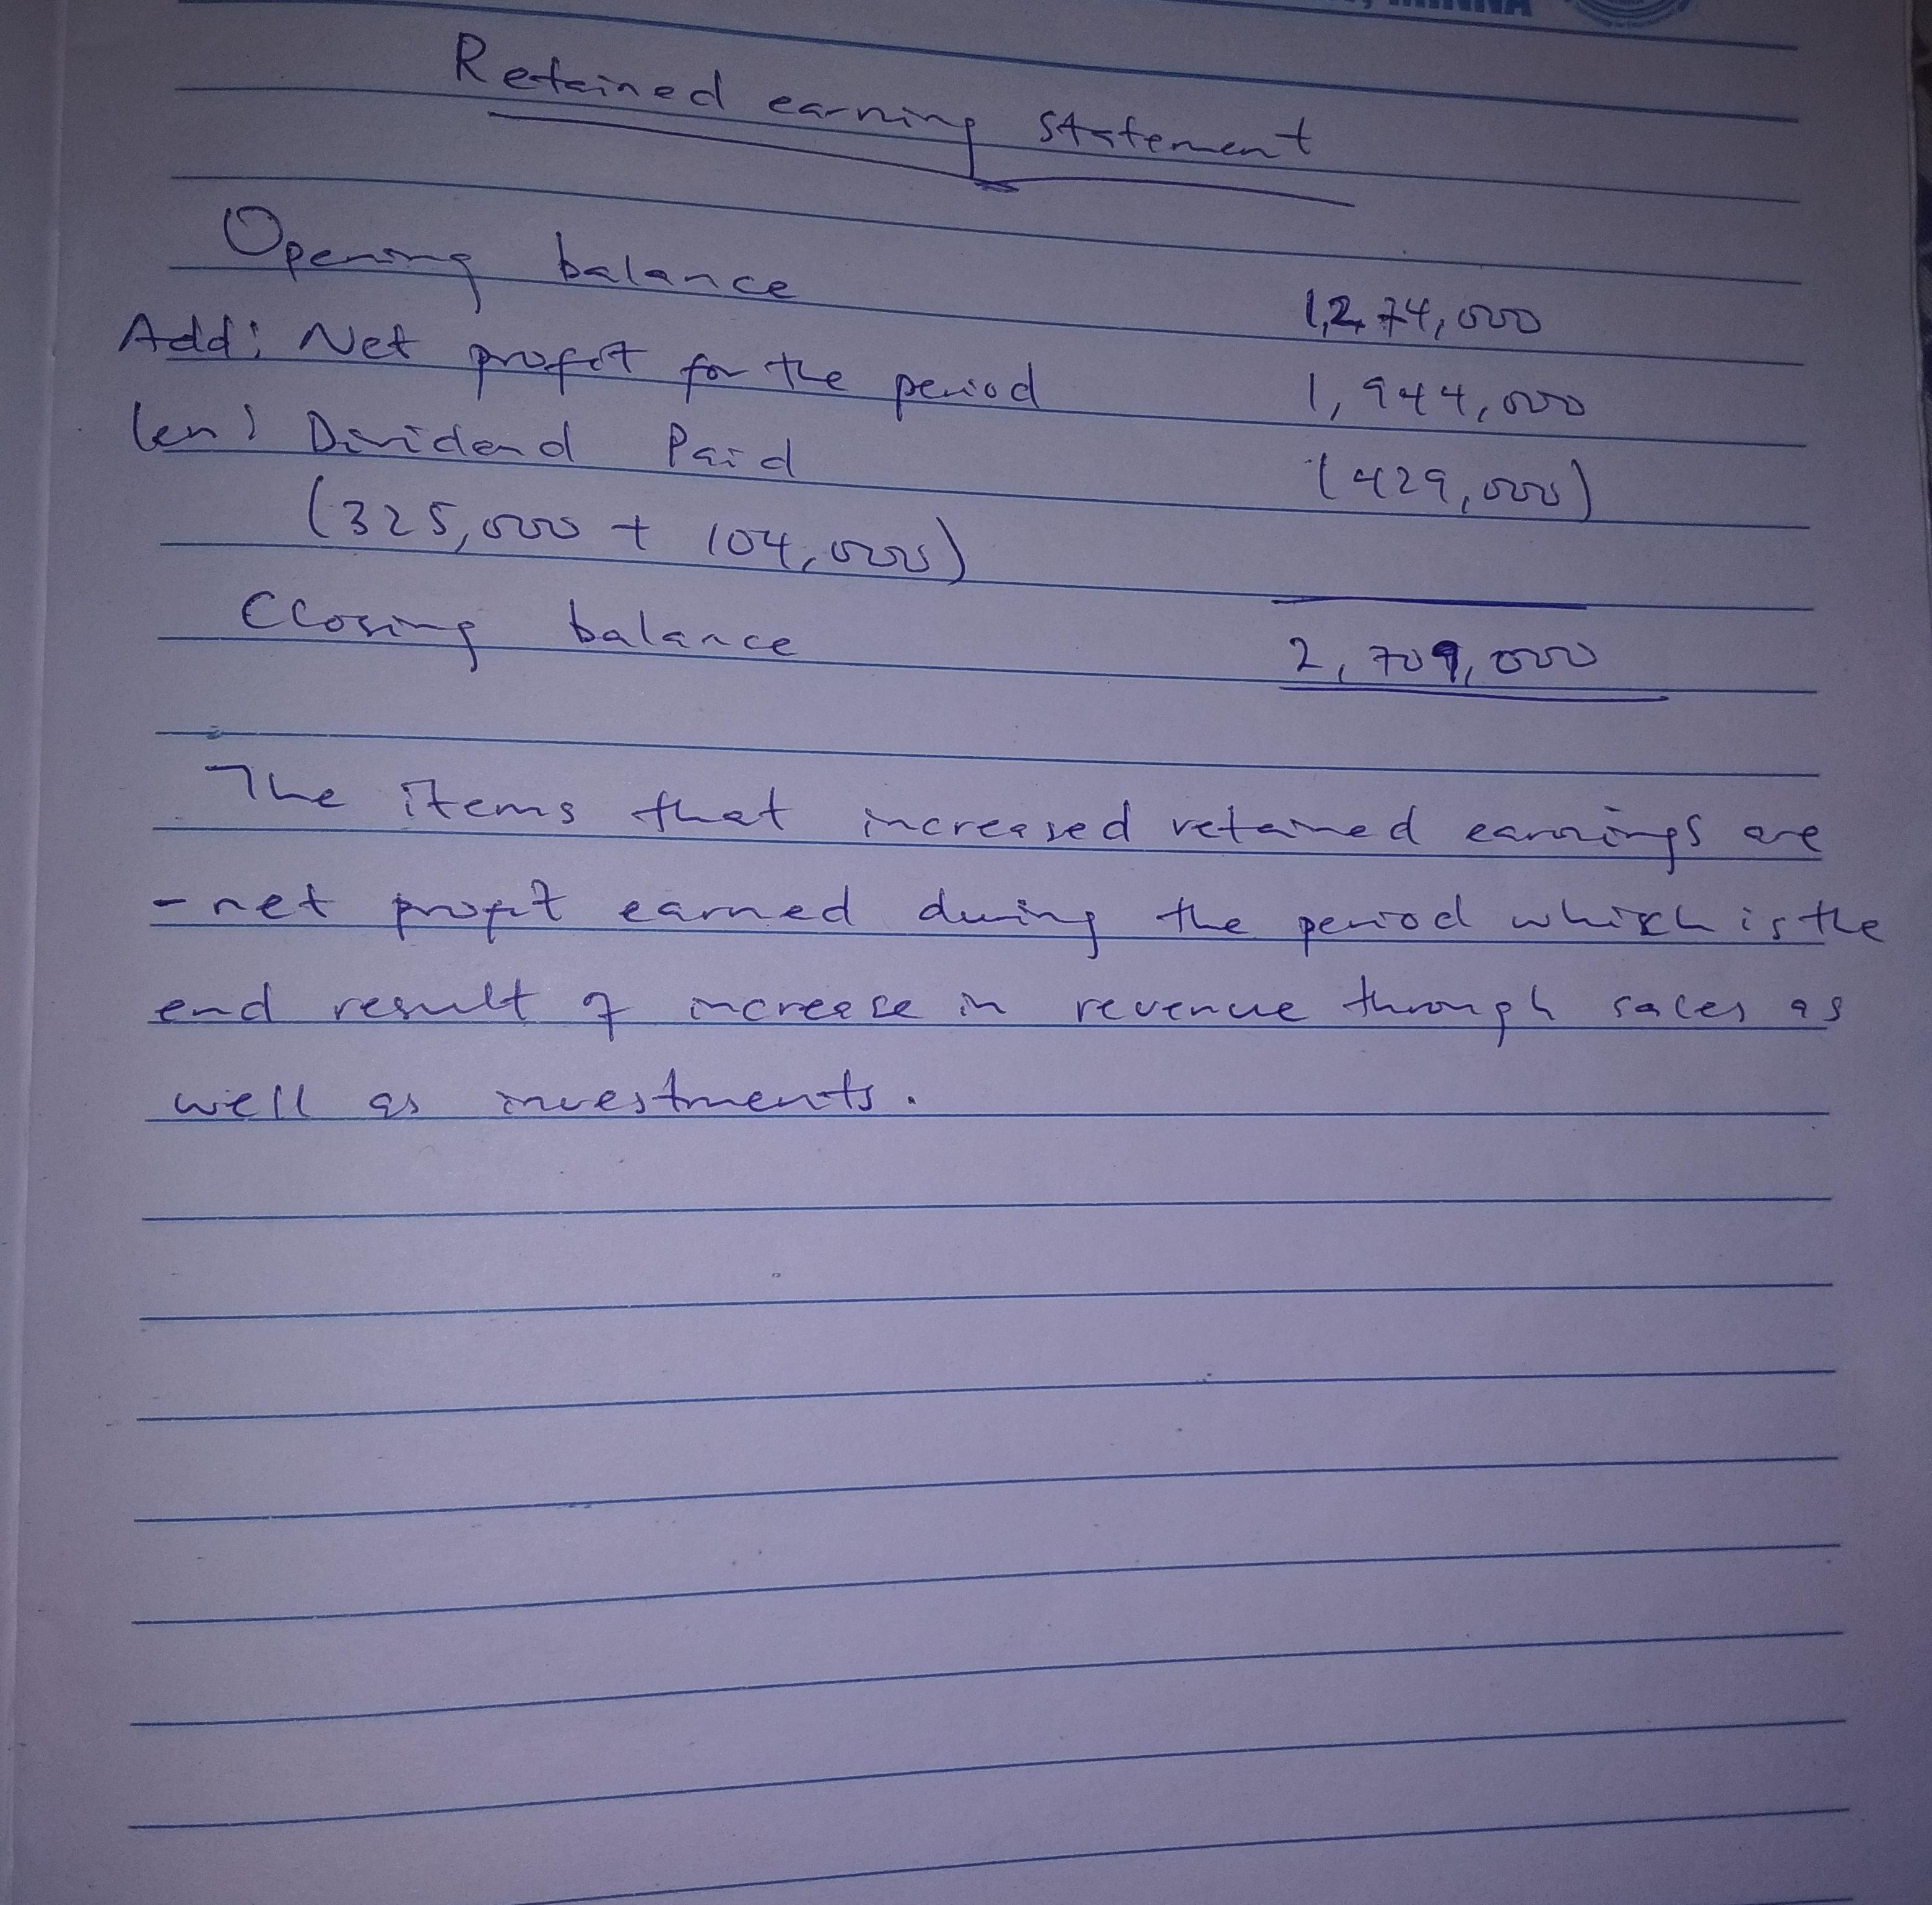 MINNA
Retained earning statement
Opening balance 1,274,000
Add: Net profit for the period 1,944,000
Less: Dividend Paid (429,000)
(325,000 + 104,000)
Closing balance 2,709,000
The items that increased retained earnings are
- net profit earned during the period which is the
end result of increase in revenue through sales as
well as investments.